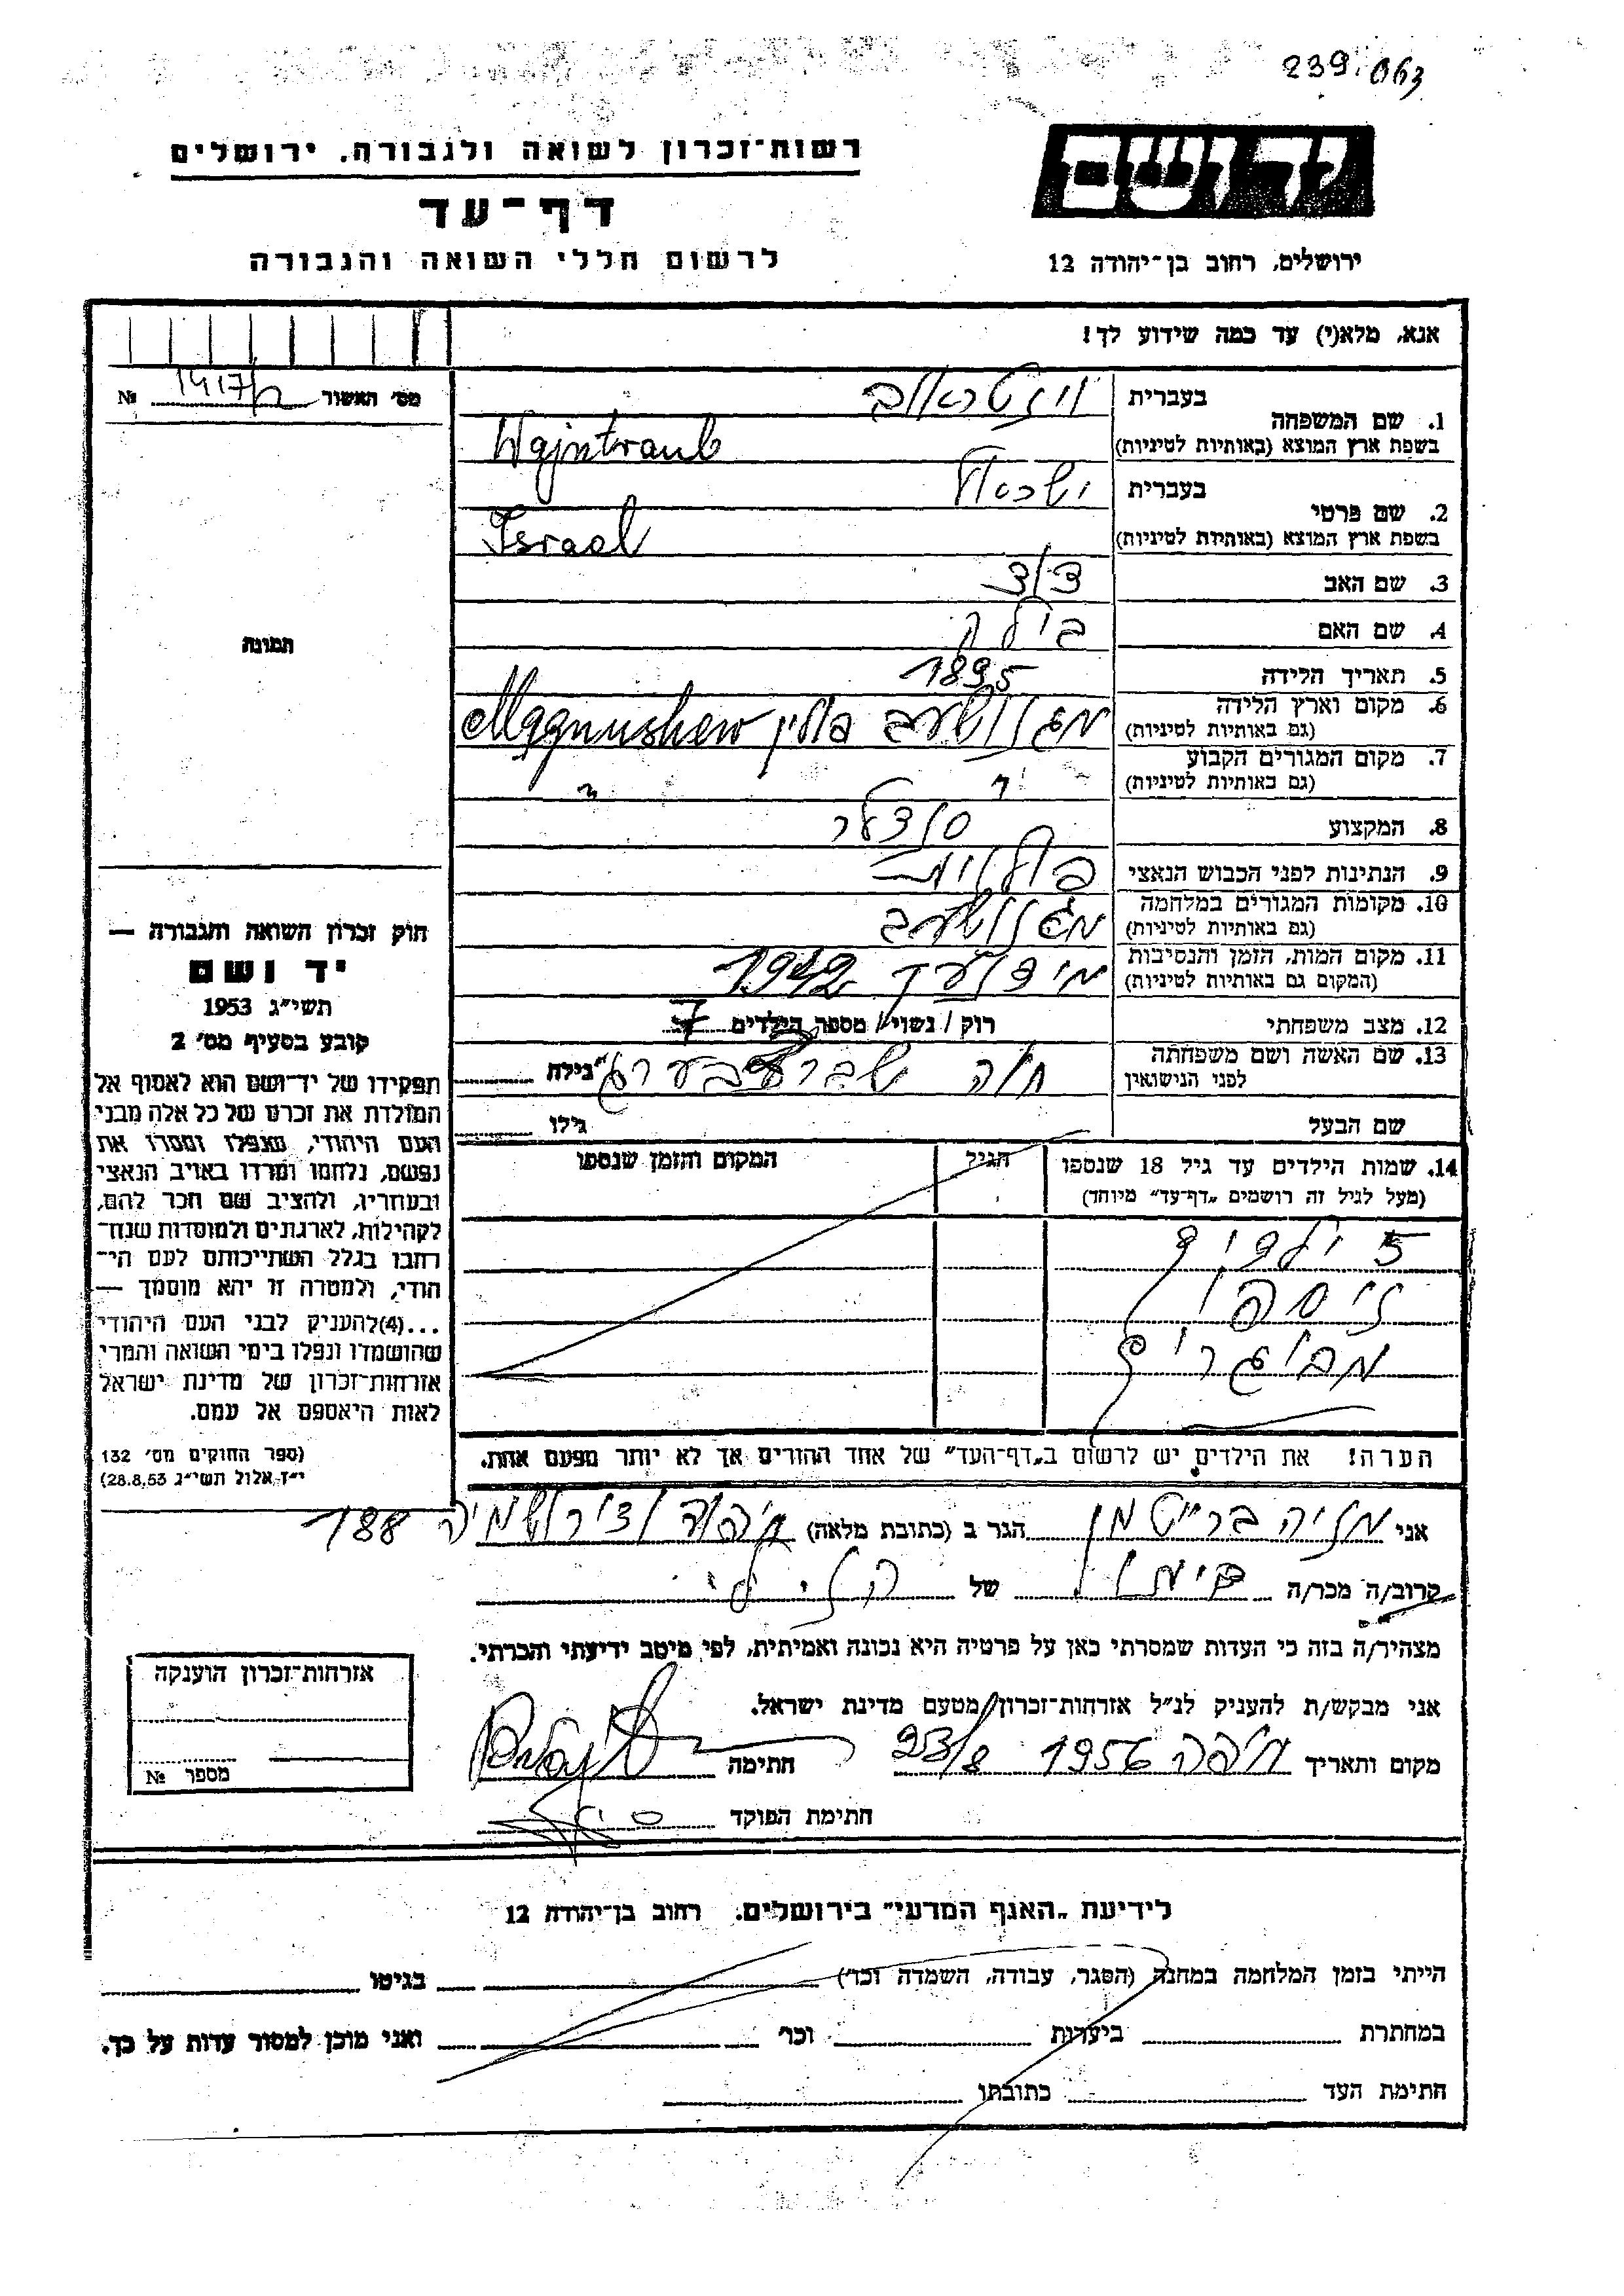 239.063
יד ושם
רשות־זכרון לשואה ולגבורה, ירושלים
דף־עד
לרשום חללי השואה והגבורה
ירושלים, רחוב בן־יהודה 12
אנא, מלא(י) עד כמה שידוע לך!
מס' האשור 1417/ №
1. שם המשפחה
בעברית וינטראוב
בשפת ארץ המוצא (באותיות לטיניות) Wajntraub
2. שם פרטי
בעברית ישראל
בשפת ארץ המוצא (באותיות לטיניות) Israel
3. שם האב
4. שם האם
5. תאריך הלידה 1895
6. מקום וארץ הלידה
(גם באותיות לטיניות) מגנושעב פולין Magnushew
7. מקום המגורים הקבוע
(גם באותיות לטיניות) " "
8. המקצוע סנדלר
9. הנתינות לפני הכבוש הנאצי פולנית
10. מקומות המגורים במלחמה
(גם באותיות לטיניות) מגנושעב
11. מקום המות, הזמן והנסיבות
(המקום גם באותיות לטיניות) 1942
12. מצב משפחתי רוק / נשוי / מספר הילדים 7
13. שם האשה ושם משפחתה
לפני הנישואין חוה גילה
שם הבעל גילו
14. שמות הילדים עד גיל 18 שנספו
(מעל לגיל זה רושמים „דף־עד" מיוחד)
הגיל
המקום והזמן שנספו
5 ילדים
ניספו
מבוגרים
הערה! את הילדים יש לרשום ב„דף־העד" של אחד ההורים אך לא יותר מפעם אחת.
תמונה
חוק זכרון השואה והגבורה —
יד ושם
תשי"ג 1953
קובע בסעיף מס' 2
תפקידו של יד־ושם הוא לאסוף אל
המולדת את זכרם של כל אלה מבני
העם היהודי, שנפלו ומסרו את
נפשם, נלחמו ומרדו באויב הנאצי
ובעוזריו, ולהציב שם וזכר להם,
לקהילות, לארגונים ולמוסדות שנח־
רבו בגלל השתייכותם לעם הי־
הודי, ולמטרה זו יהא מוסמך —
...(4)להעניק לבני העם היהודי
שהושמדו ונפלו בימי השואה והמרי
אזרחות־זכרון של מדינת ישראל
לאות היאספם אל עמם.
(ספר החוקים מס' 132
י"ז אלול תשי"ג 28.8.53)
אני מניה ברייטמן הגר ב (כתובת מלאה) חיפה 188
קרוב/ה מכר/ה של
מצהיר/ה בזה כי העדות שמסרתי כאן על פרטיה היא נכונה ואמיתית, לפי מיטב ידיעתי והכרתי.
אני מבקש/ת להעניק לנ"ל אזרחות־זכרון מטעם מדינת ישראל.
מקום ותאריך חיפה 1956 23/8 חתימה
חתימת הפוקד
אזרחות־זכרון הוענקה
מספר №
לידיעת „האגף המדעי" בירושלים. רחוב בן־יהודה 12
הייתי בזמן המלחמה במחנה (הסגר, עבודה, השמדה וכר') בגיטו
במחתרת ביערות וכר' ואני מוכן למסור עדות על כך.
חתימת העד כתובתו